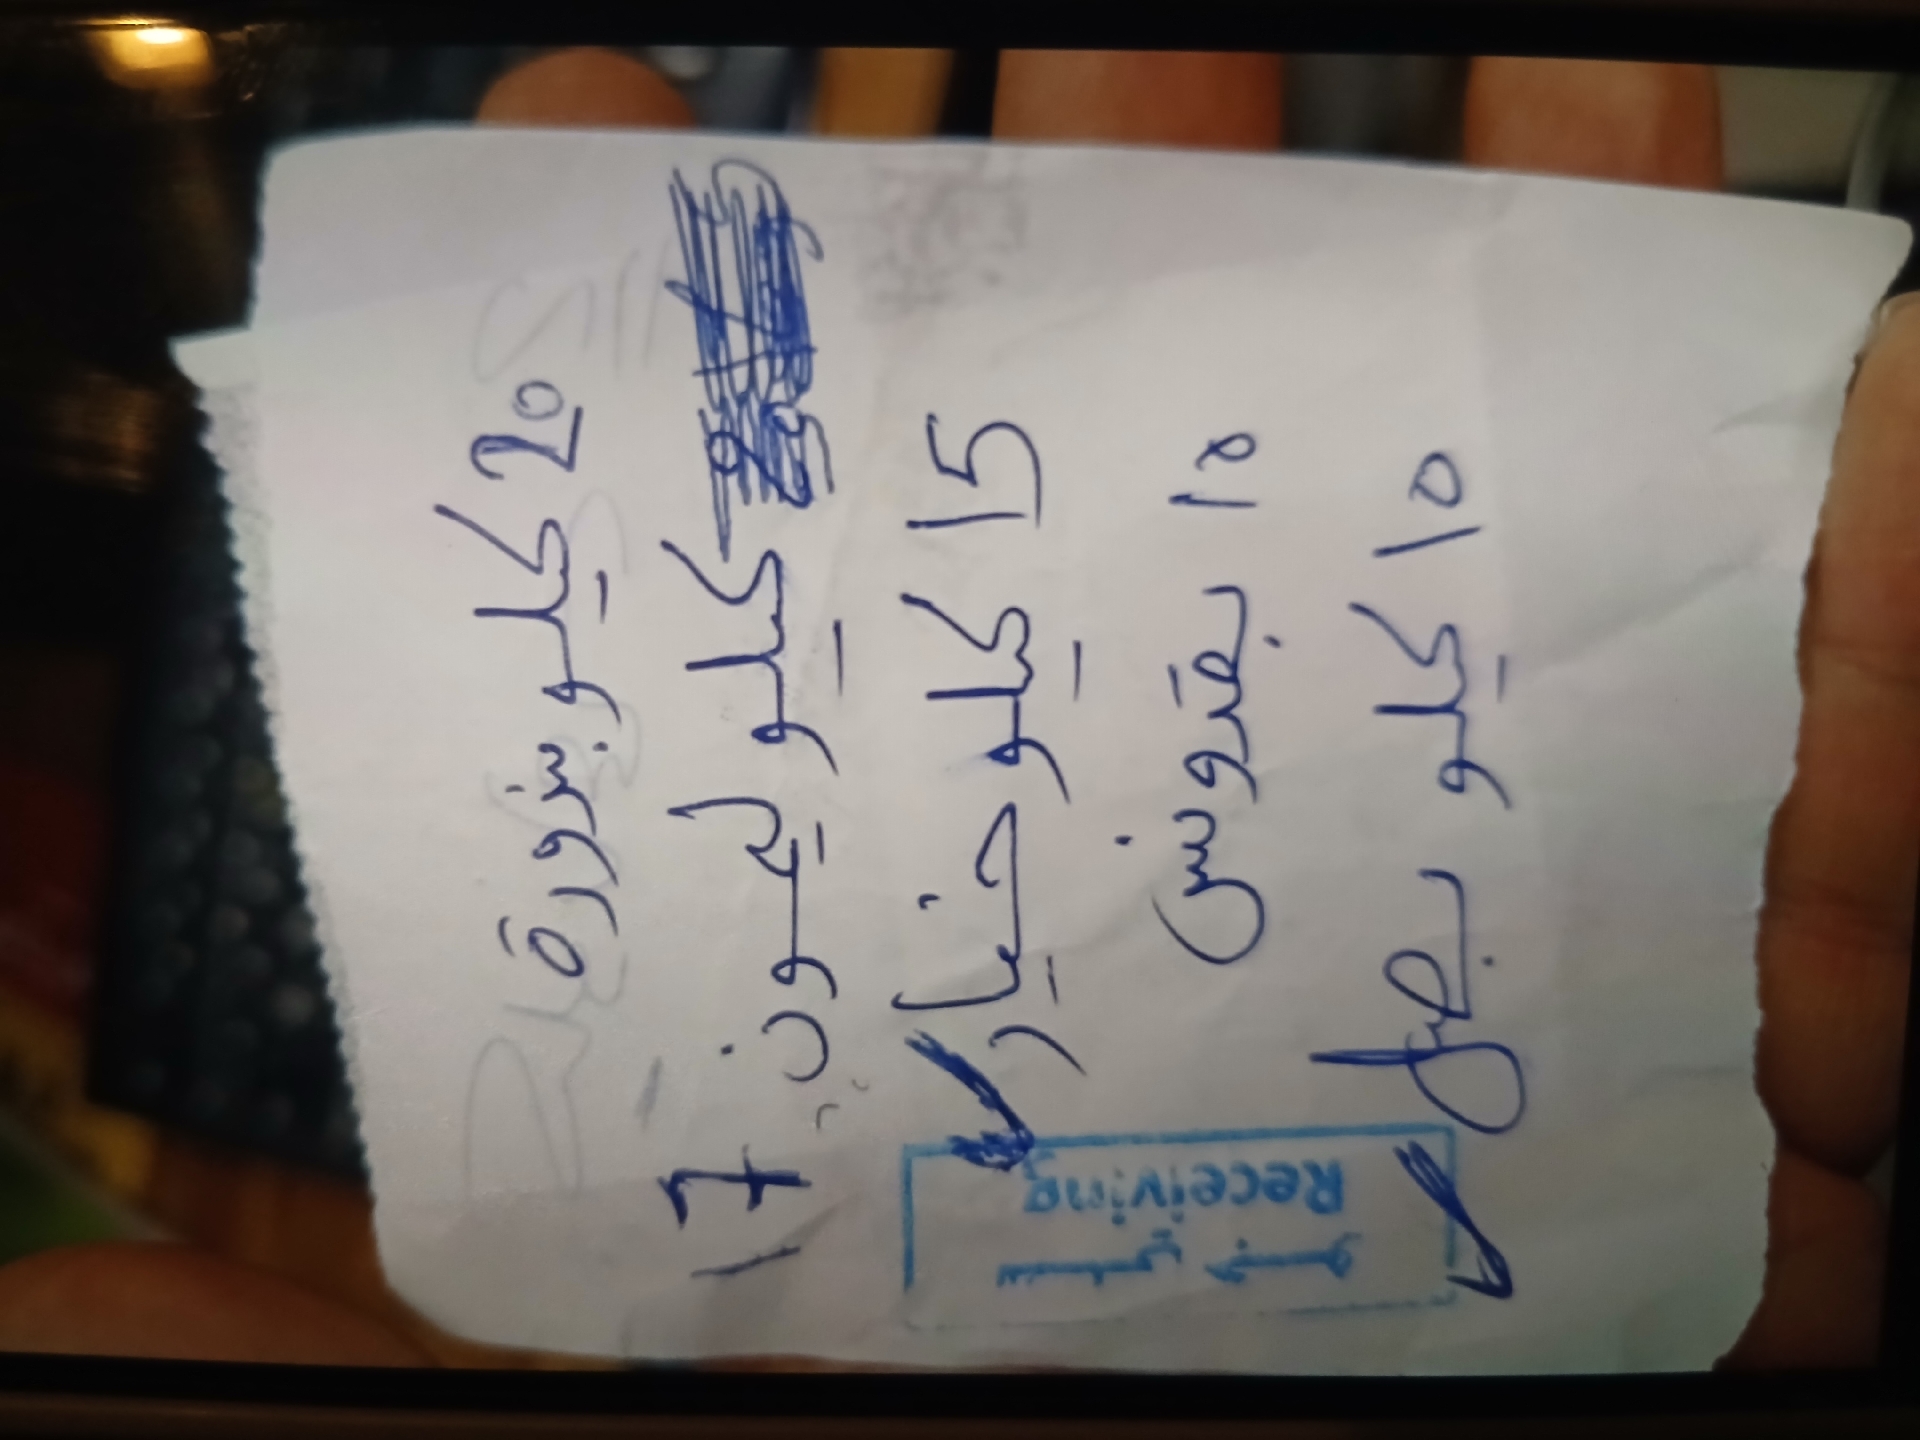 20 كيلو بندورة
كيلو ليمون 17
15 كيلو خيار
10 بقدونس
10 كيلو بصل
Receiving